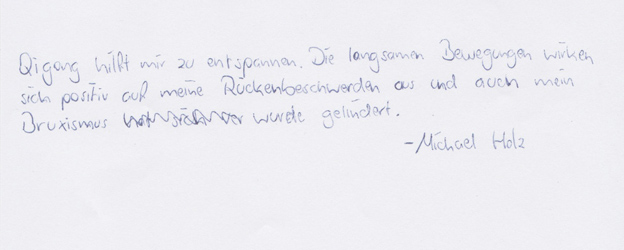 Qigong hilft mir zu entspannen. Die langsamen Bewegungen wirken
sich positiv auf meine Rückenbeschwerden aus und auch mein
Bruxismus wurde gelindert.
-Michael Holz